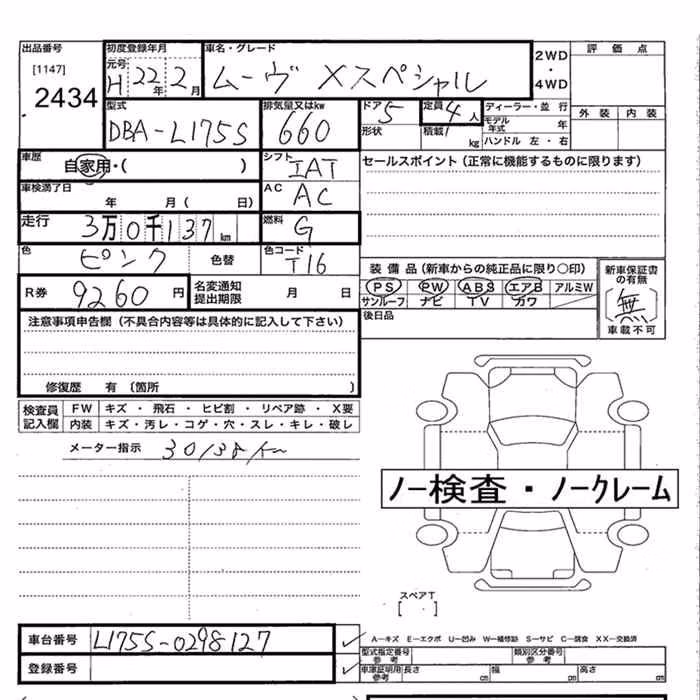 出品番号 [1147] 2434
初度登録年月 元号 H 22年 2月
車名・グレード ムーヴ Xスペシャル
2WD・4WD
評価点
外装 内装
型式 DBA-L175S
排気量又はkw 660
ドア 5 形状
定員 4人 積載 kg
ディーラー・並行
モデル年式 年
ハンドル 左・右
車歴 自家用・( )
シフト IAT
セールスポイント (正常に機能するものに限ります)
車検満了日 年 月( 日)
AC AC
走行 3万0千137km
燃料 G
色 ピンク 色替
色コード T16
装備品(新車からの純正品に限り○印)
PS PW ABS エアB アルミW
サンルーフ ナビ TV カワ
新車保証書の有無 無 車載不可
R券 9260円
名変通知提出期限 月 日
後日品
注意事項申告欄 (不具合内容等は具体的に記入して下さい)
修復歴 有 (箇所 )
検査員記入欄
FW キズ・飛石・ヒビ割・リペア跡・X要
内装 キズ・汚レ・コゲ・穴・スレ・キレ・破レ
メーター指示 30138km
ノー検査・ノークレーム
スペアT
[ . ]
車台番号 L175S-0298127
A-キズ E-エクボ U-凹み W-補修跡 S-サビ C-腐食 XX-交換済
型式指定番号 参考 類別区分番号 参考
登録番号
車庫証明用参考 長さ cm 幅 cm 高さ cm